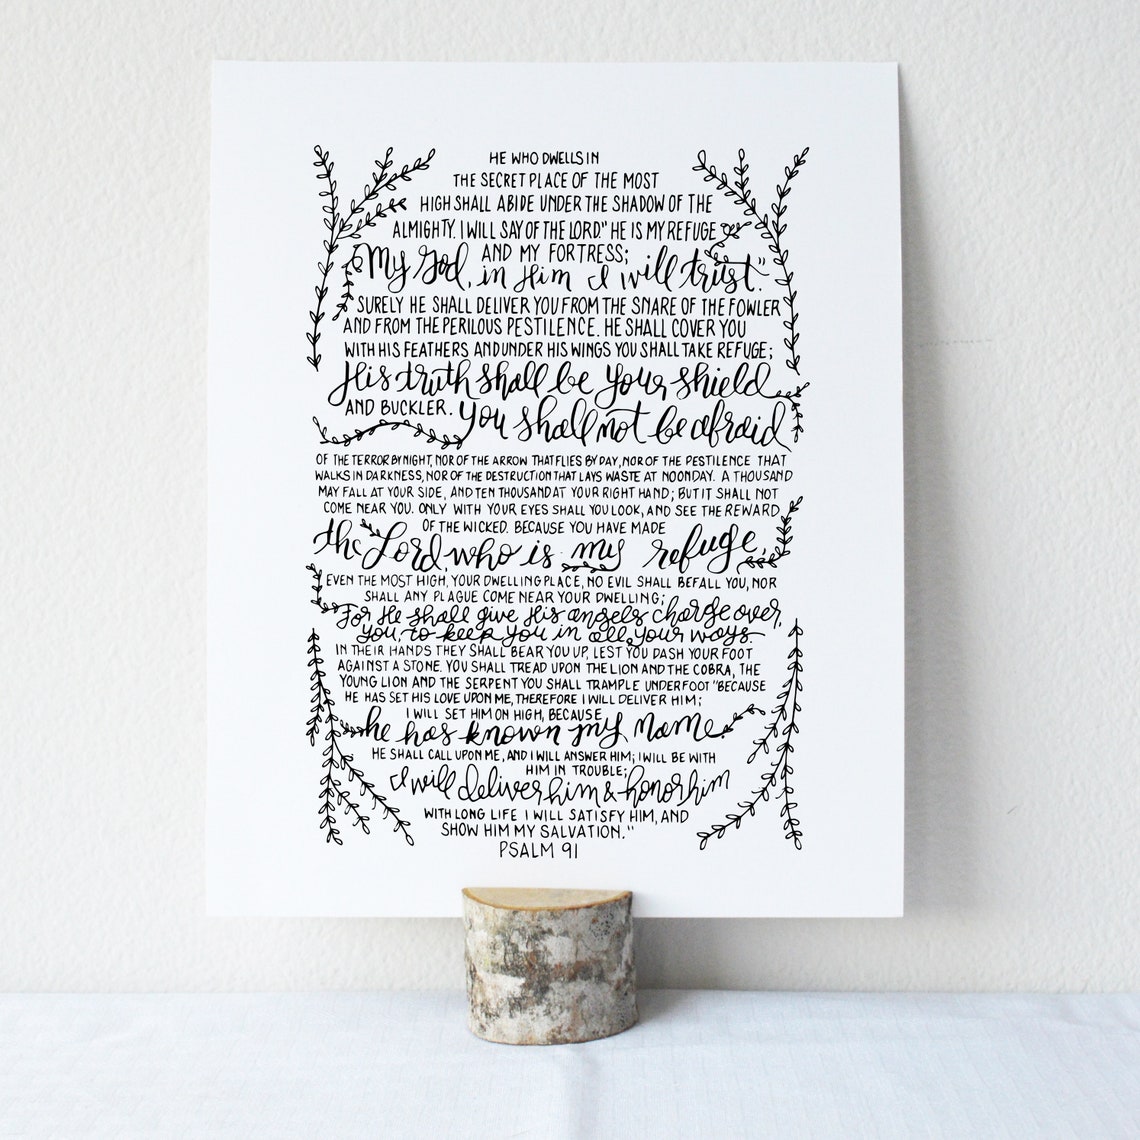 HE WHO DWELLS IN
THE SECRET PLACE OF THE MOST
HIGH SHALL ABIDE UNDER THE SHADOW OF THE
ALMIGHTY. I WILL SAY OF THE LORD." HE IS MY REFUGE
AND MY FORTRESS;
My God, in Him I will trust."
SURELY HE SHALL DELIVER YOU FROM THE SNARE OF THE FOWLER
AND FROM THE PERILOUS PESTILENCE. HE SHALL COVER YOU
WITH HIS FEATHERS AND UNDER HIS WINGS YOU SHALL TAKE REFUGE;
His truth shall be your shield
AND BUCKLER. You shall not be afraid
OF THE TERROR BY NIGHT, NOR OF THE ARROW THAT FLIES BY DAY, NOR OF THE PESTILENCE THAT
WALKS IN DARKNESS, NOR OF THE DESTRUCTION THAT LAYS WASTE AT NOONDAY. A THOUSAND
MAY FALL AT YOUR SIDE, AND TEN THOUSAND AT YOUR RIGHT HAND; BUT IT SHALL NOT
COME NEAR YOU. ONLY WITH YOUR EYES SHALL YOU LOOK, AND SEE THE REWARD
OF THE WICKED. BECAUSE YOU HAVE MADE
the Lord, who is my refuge,
EVEN THE MOST HIGH, YOUR DWELLING PLACE, NO EVIL SHALL BEFALL YOU, NOR
SHALL ANY PLAGUE COME NEAR YOUR DWELLING;
For He shall give His angels charge over
you, to keep you in all your ways.
IN THEIR HANDS THEY SHALL BEAR YOU UP, LEST YOU DASH YOUR FOOT
AGAINST A STONE. YOU SHALL TREAD UPON THE LION AND THE COBRA, THE
YOUNG LION AND THE SERPENT YOU SHALL TRAMPLE UNDERFOOT "BECAUSE
HE HAS SET HIS LOVE UPON ME, THEREFORE I WILL DELIVER HIM;
I WILL SET HIM ON HIGH, BECAUSE
he has known my name.
HE SHALL CALL UPON ME, AND I WILL ANSWER HIM; I WILL BE WITH
HIM IN TROUBLE;
I will deliver him & honor him
WITH LONG LIFE I WILL SATISFY HIM, AND
SHOW HIM MY SALVATION."
PSALM 91